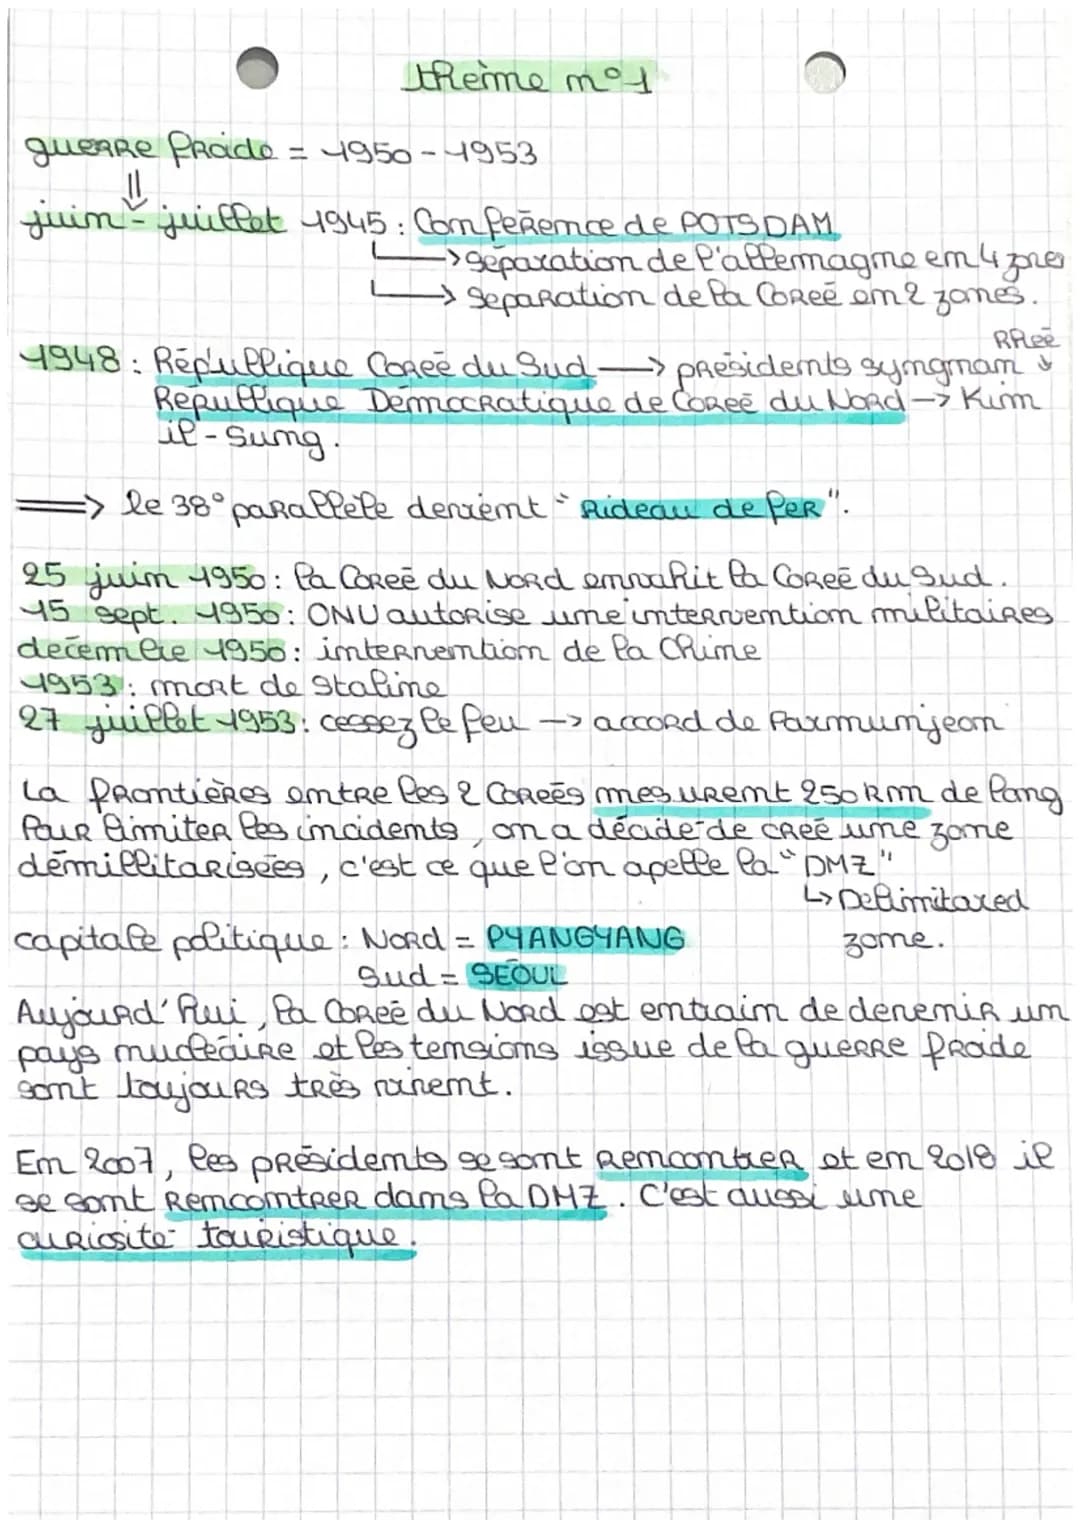 thème n°1
guerre froide = 1950-1953
⇓
juin - juillet 1945 : Conférence de POTSDAM
↳ séparation de l'allemagne en 4 zones
↳ separation de la Coreé en 2 zones.
RHeé
1948 : République Coreé du Sud → présidents syngman ↓
République Démocratique de Coreé du Nord → Kim
il-Sung.
⇒ le 38° parallèle devient "Rideau de fer".
25 juin 1950 : la Coreé du Nord envahit la Coreé du Sud.
15 sept. 1950 : ONU autorise une intervention militaires
decembre 1950 : intervention de la Chine
1953 : mort de Staline
27 juillet 1953 : cessez le feu → accord de Panmunjeon
La frontières entre les 2 Coreés mesurent 250 km de long
Pour limiter les incidents, on a décidé de creé une zone
démillitarisées, c'est ce que l'on apelle la "DMZ"
↳ Delimitared
zone.
capitale politique : Nord = PYANGYANG
Sud = SEOUL
Aujourd'hui, la Coreé du Nord est entrain de devenir un
pays nucléaire et les tensions issue de la guerre froide
sont toujours très vivent.
En 2007, les présidents se sont rencontrer et en 2018 il
se sont rencontrer dans la DMZ. C'est aussi une
curiosité touristique.